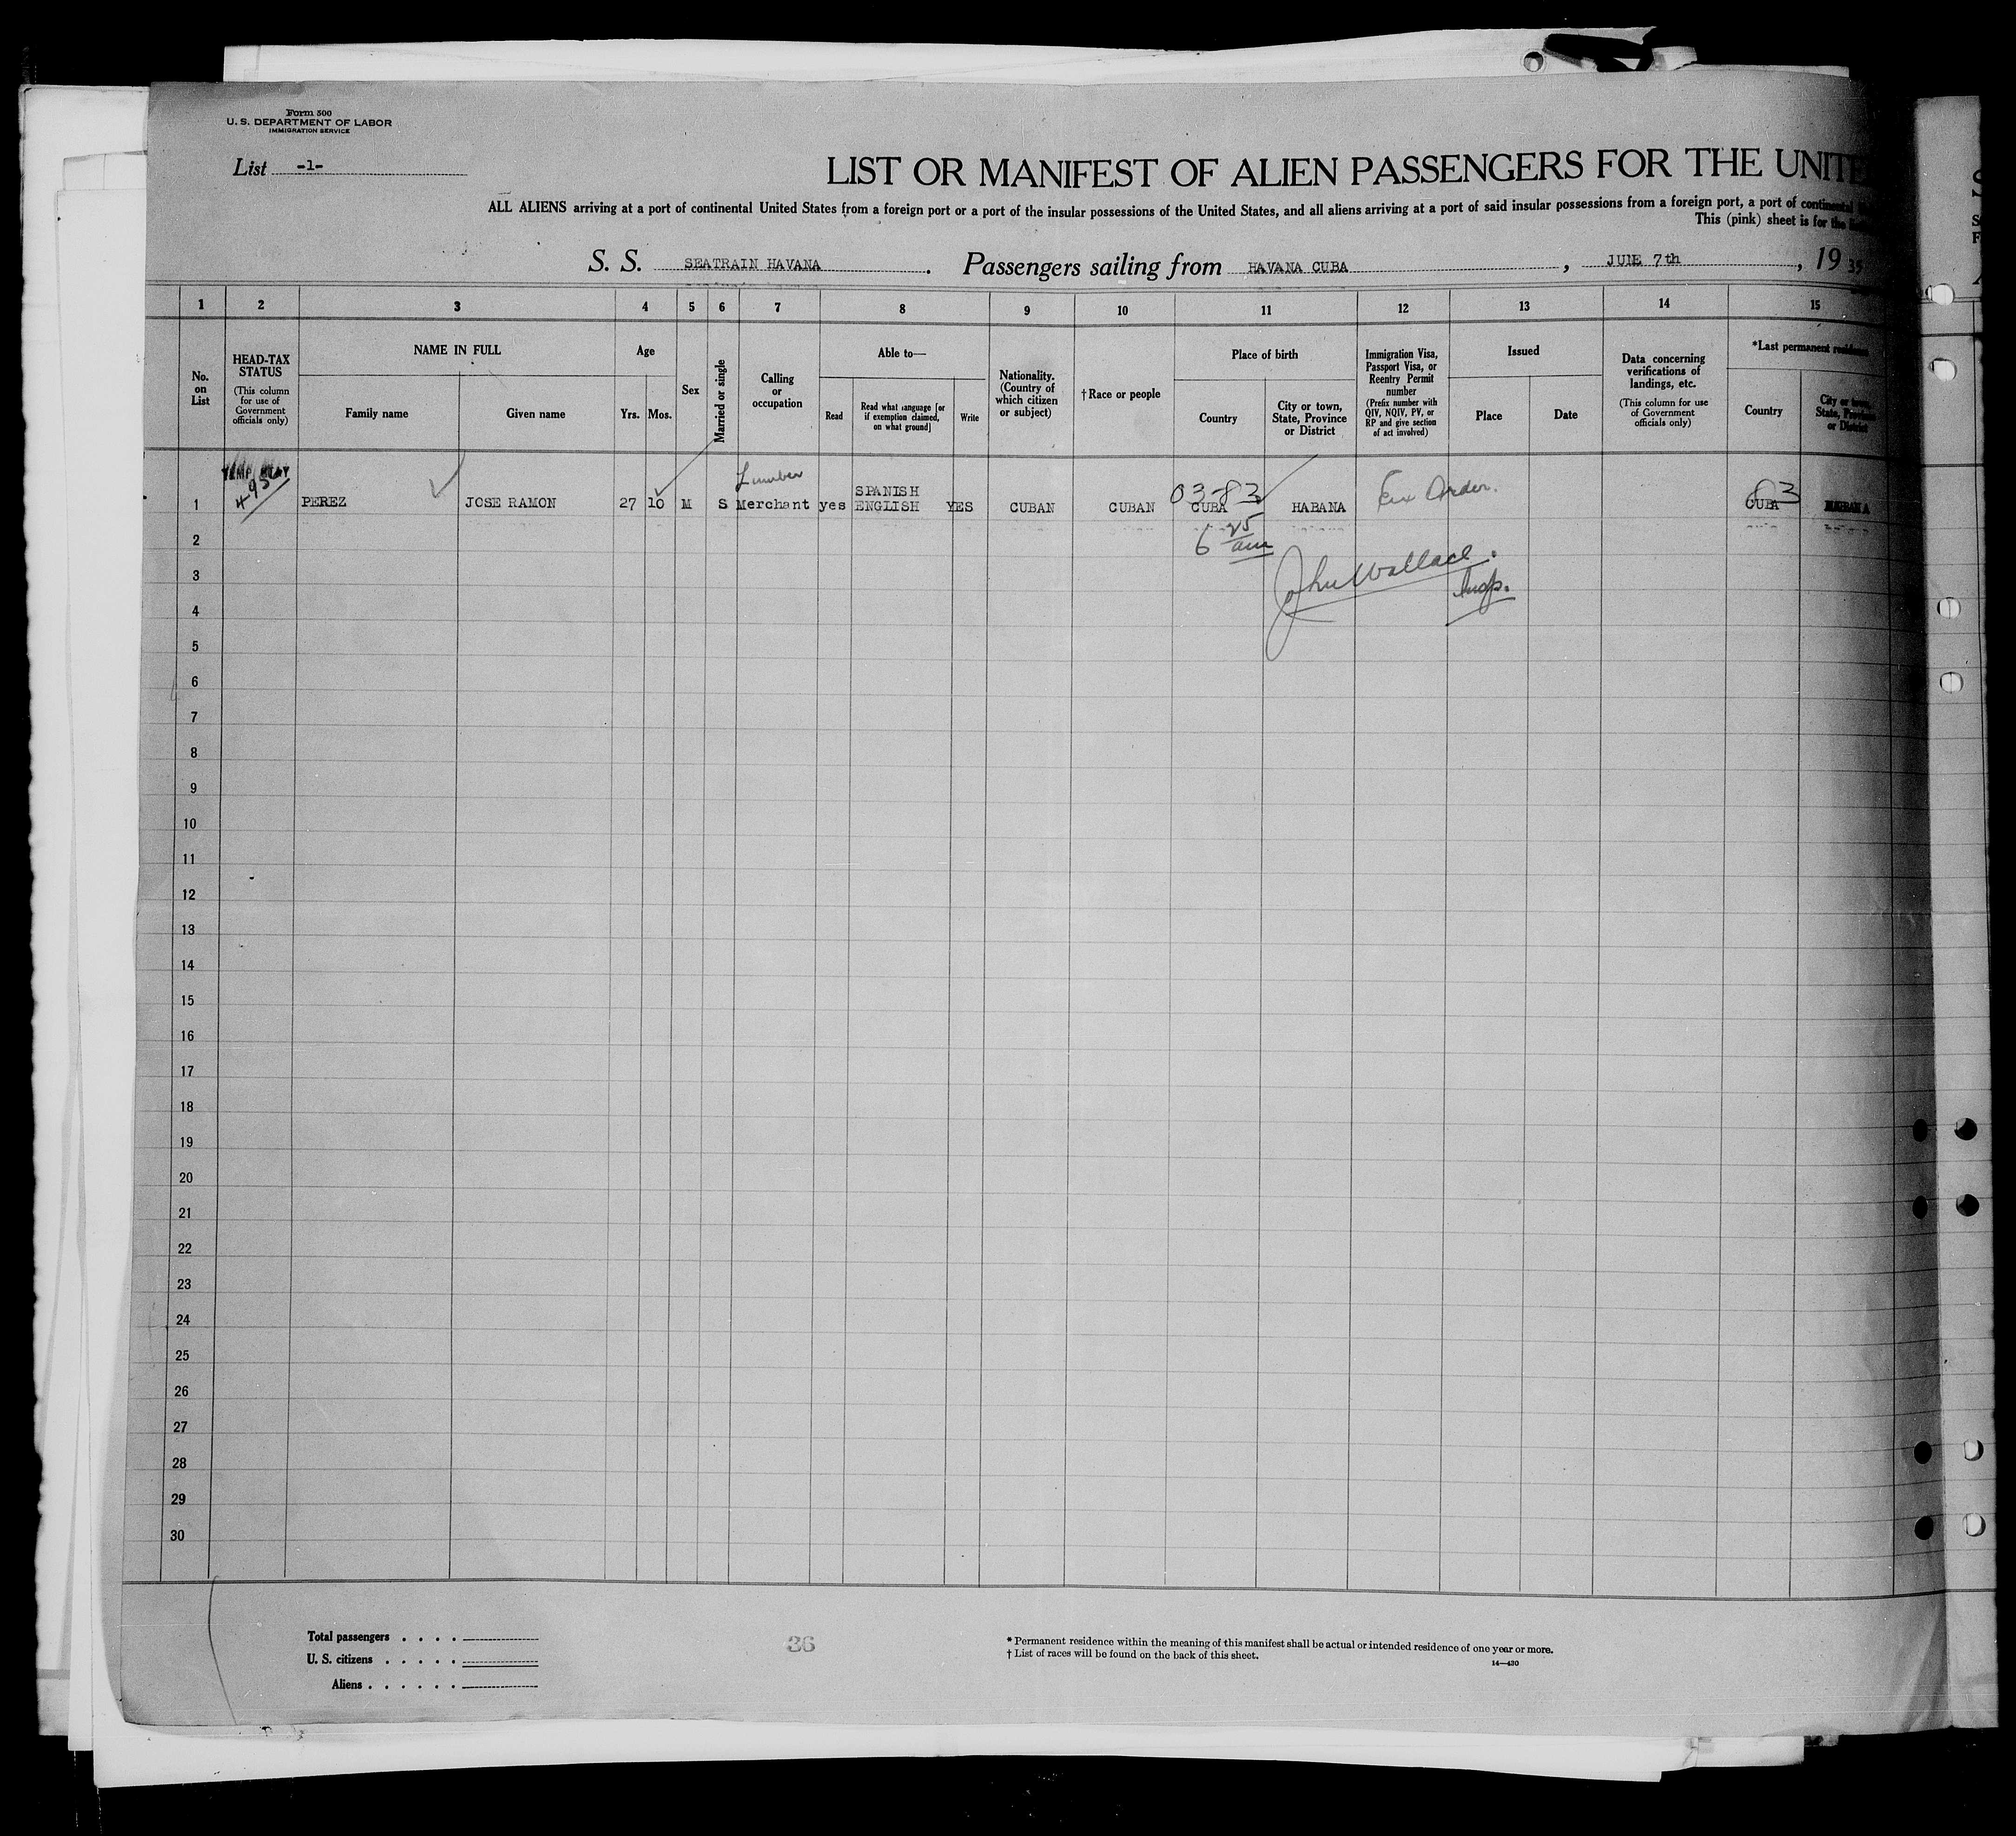 Form 500
U. S. DEPARTMENT OF LABOR
IMMIGRATION SERVICE
List -1-
LIST OR MANIFEST OF ALIEN PASSENGERS FOR THE UNITE
ALL ALIENS arriving at a port of continental United States from a foreign port or a port of the insular possessions of the United States, and all aliens arriving at a port of said insular possessions from a foreign port, a port of continental
This (pink) sheet is for the
S. S. SEATRAIN HAVANA. Passengers sailing from HAVANA CUBA, JUNE 7th, 19 35
1 2 3 4 5 6 7 8 9 10 11 12 13 14 15
No. on List
HEAD-TAX STATUS
(This column for use of Government officials only)
NAME IN FULL
Family name
Given name
Age
Yrs.
Mos.
Sex
Married or single
Calling or occupation
Able to—
Read
Read what language [or if exemption claimed, on what ground]
Write
Nationality. (Country of which citizen or subject)
† Race or people
Place of birth
Country
City or town, State, Province or District
Immigration Visa, Passport Visa, or Reentry Permit number
(Prefix number with QIV, NQIV, PV, or RP and give section of act involved)
Issued
Place
Date
Data concerning verifications of landings, etc.
(This column for use of Government officials only)
*Last permanent residence
Country
City or town, State, Province or District
TEMP
Lumber
03-83
Ex Order.
83
1 PEREZ JOSE RAMON 27 10 M S Merchant yes SPANISH ENGLISH YES CUBAN CUBAN CUBA HABANA CUBA
6 25 am
John Wallace.
Insp.
2
3
4
5
6
7
8
9
10
11
12
13
14
15
16
17
18
19
20
21
22
23
24
25
26
27
28
29
30
Total passengers . . . .
U. S. citizens . . . . .
Aliens . . . . . .
36
* Permanent residence within the meaning of this manifest shall be actual or intended residence of one year or more.
† List of races will be found on the back of this sheet.
14—430